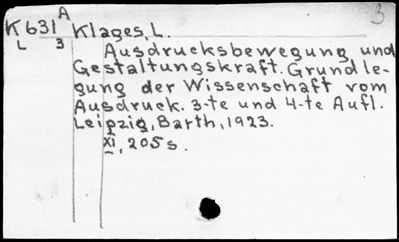 A 3
K631 Klages, L.
L 3
Ausdrucksbewegung und
Gestaltungskraft. Grundle-
gung der Wissenschaft vom
Ausdruck. 3-te und 4-te Aufl.
Leipzig, Barth, 1923.
XI, 205 s.